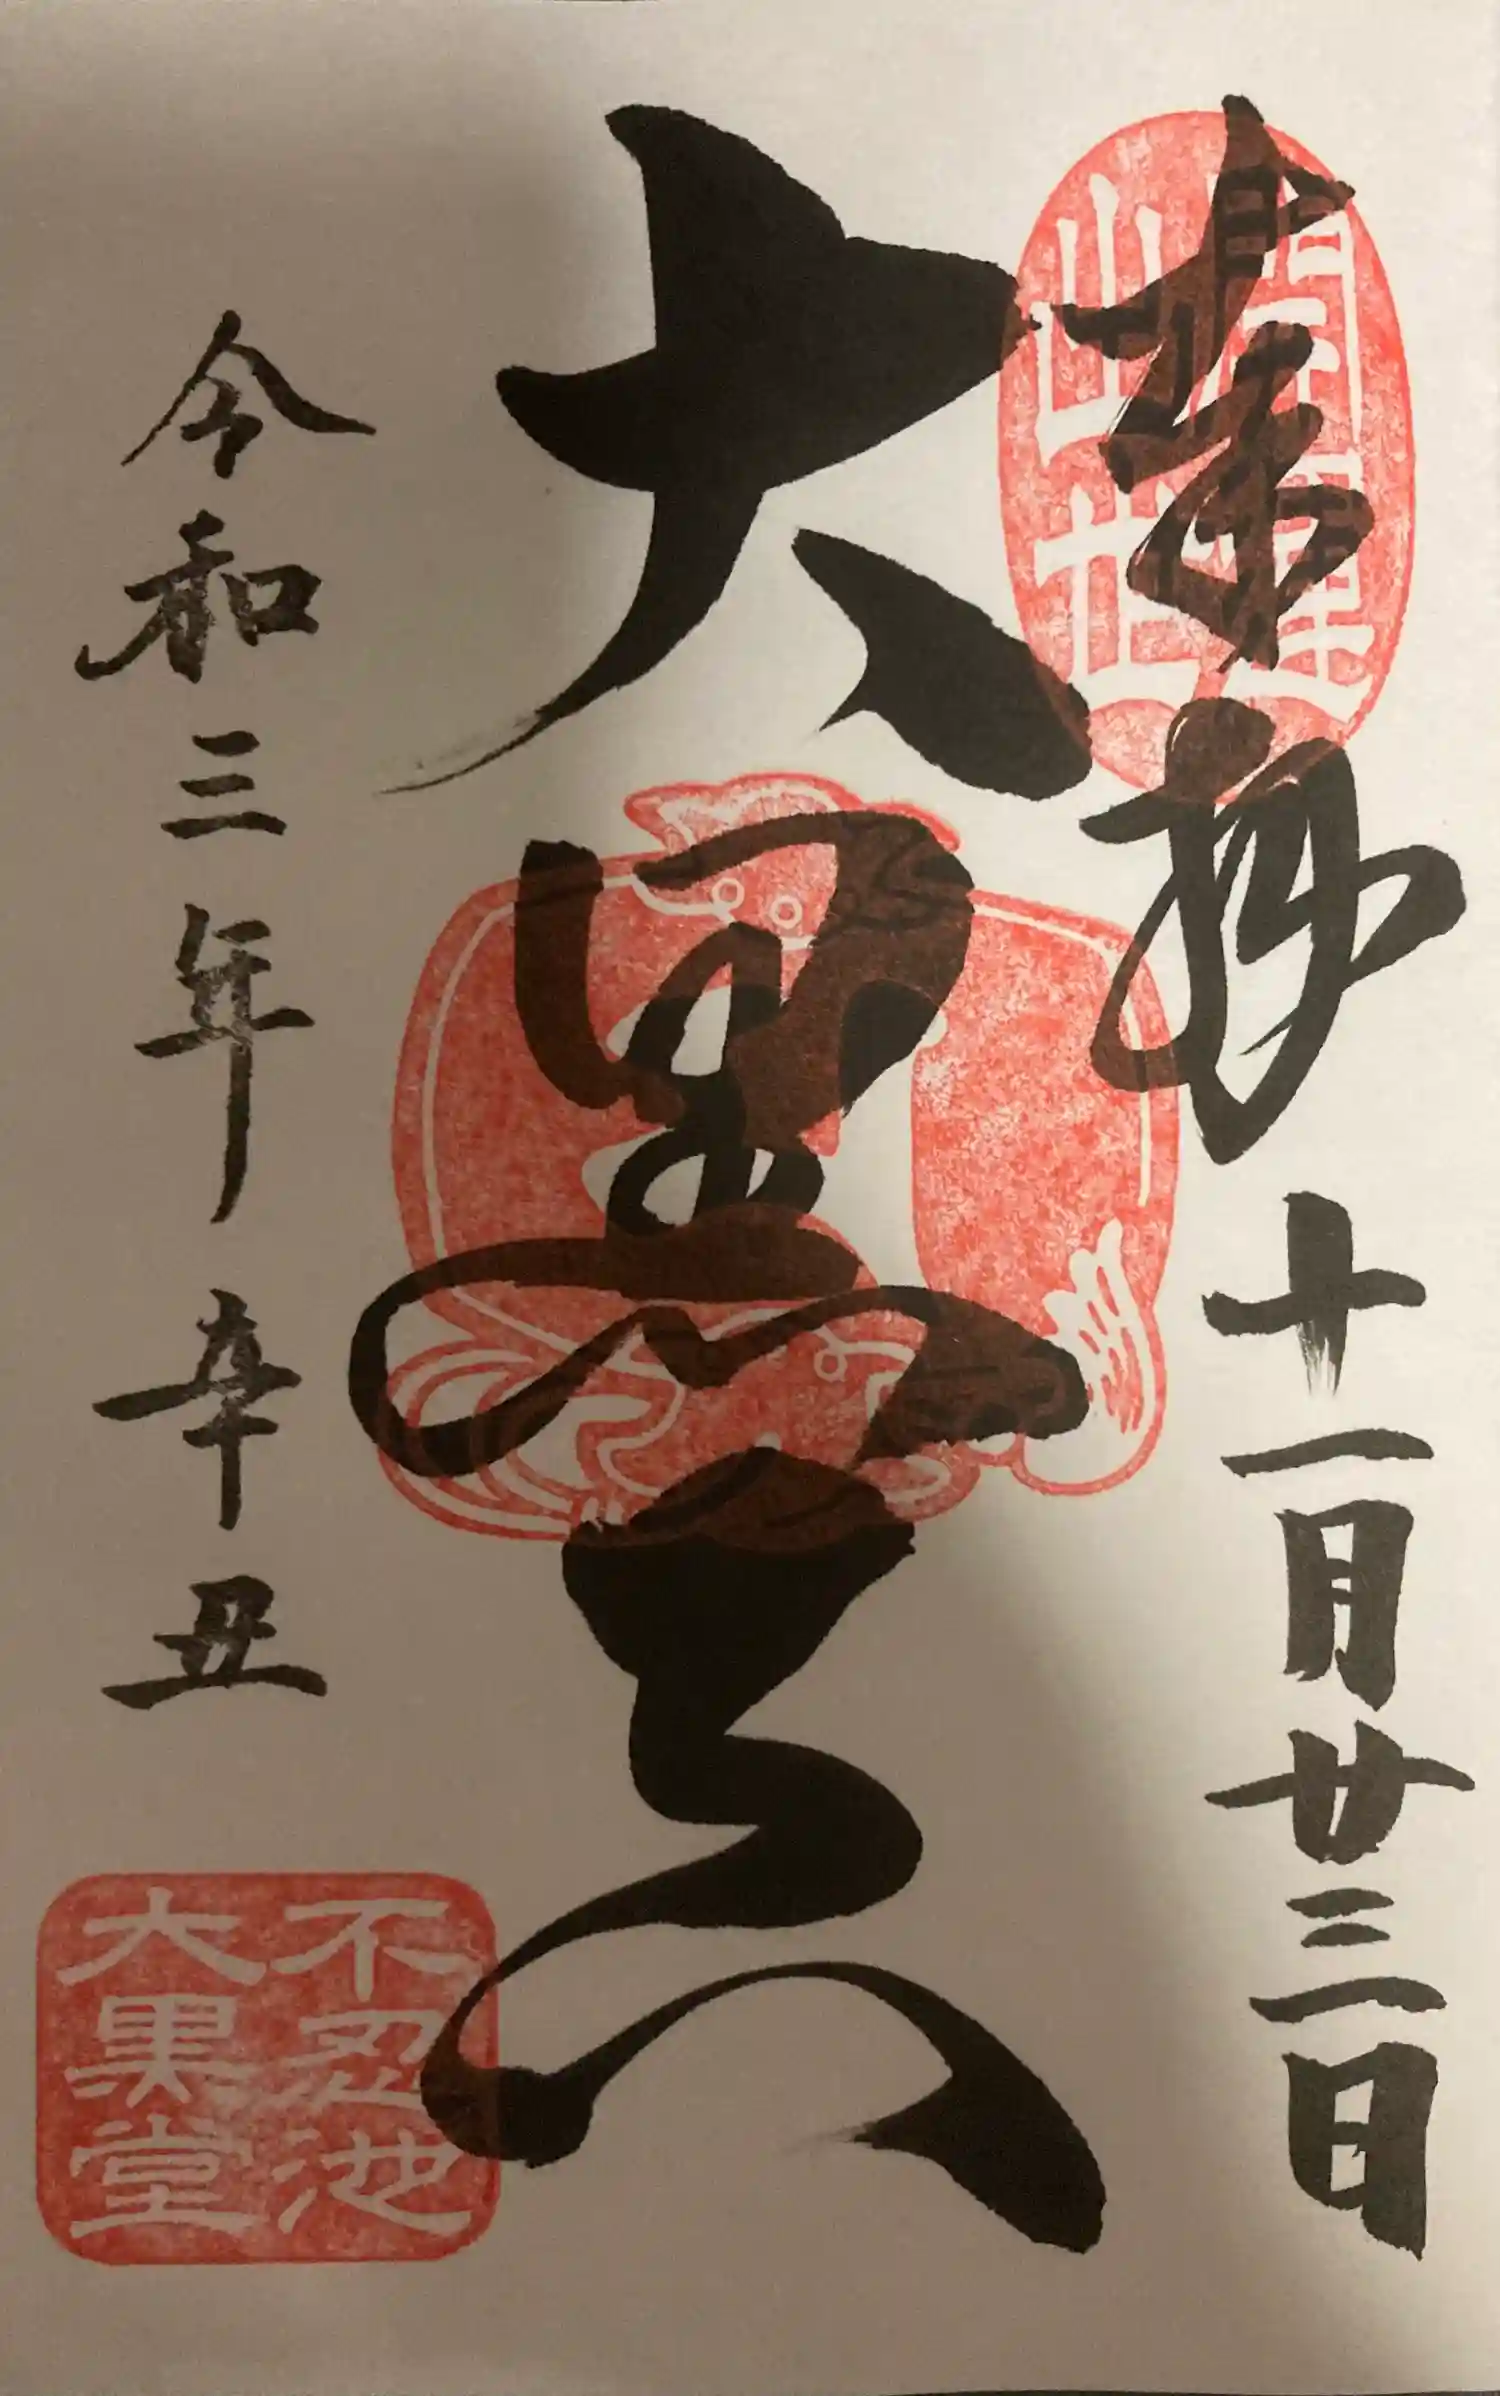 開運
出世
奉拝 十一月廿三日
大黒天
令和三年 辛丑
不忍池
大黒堂